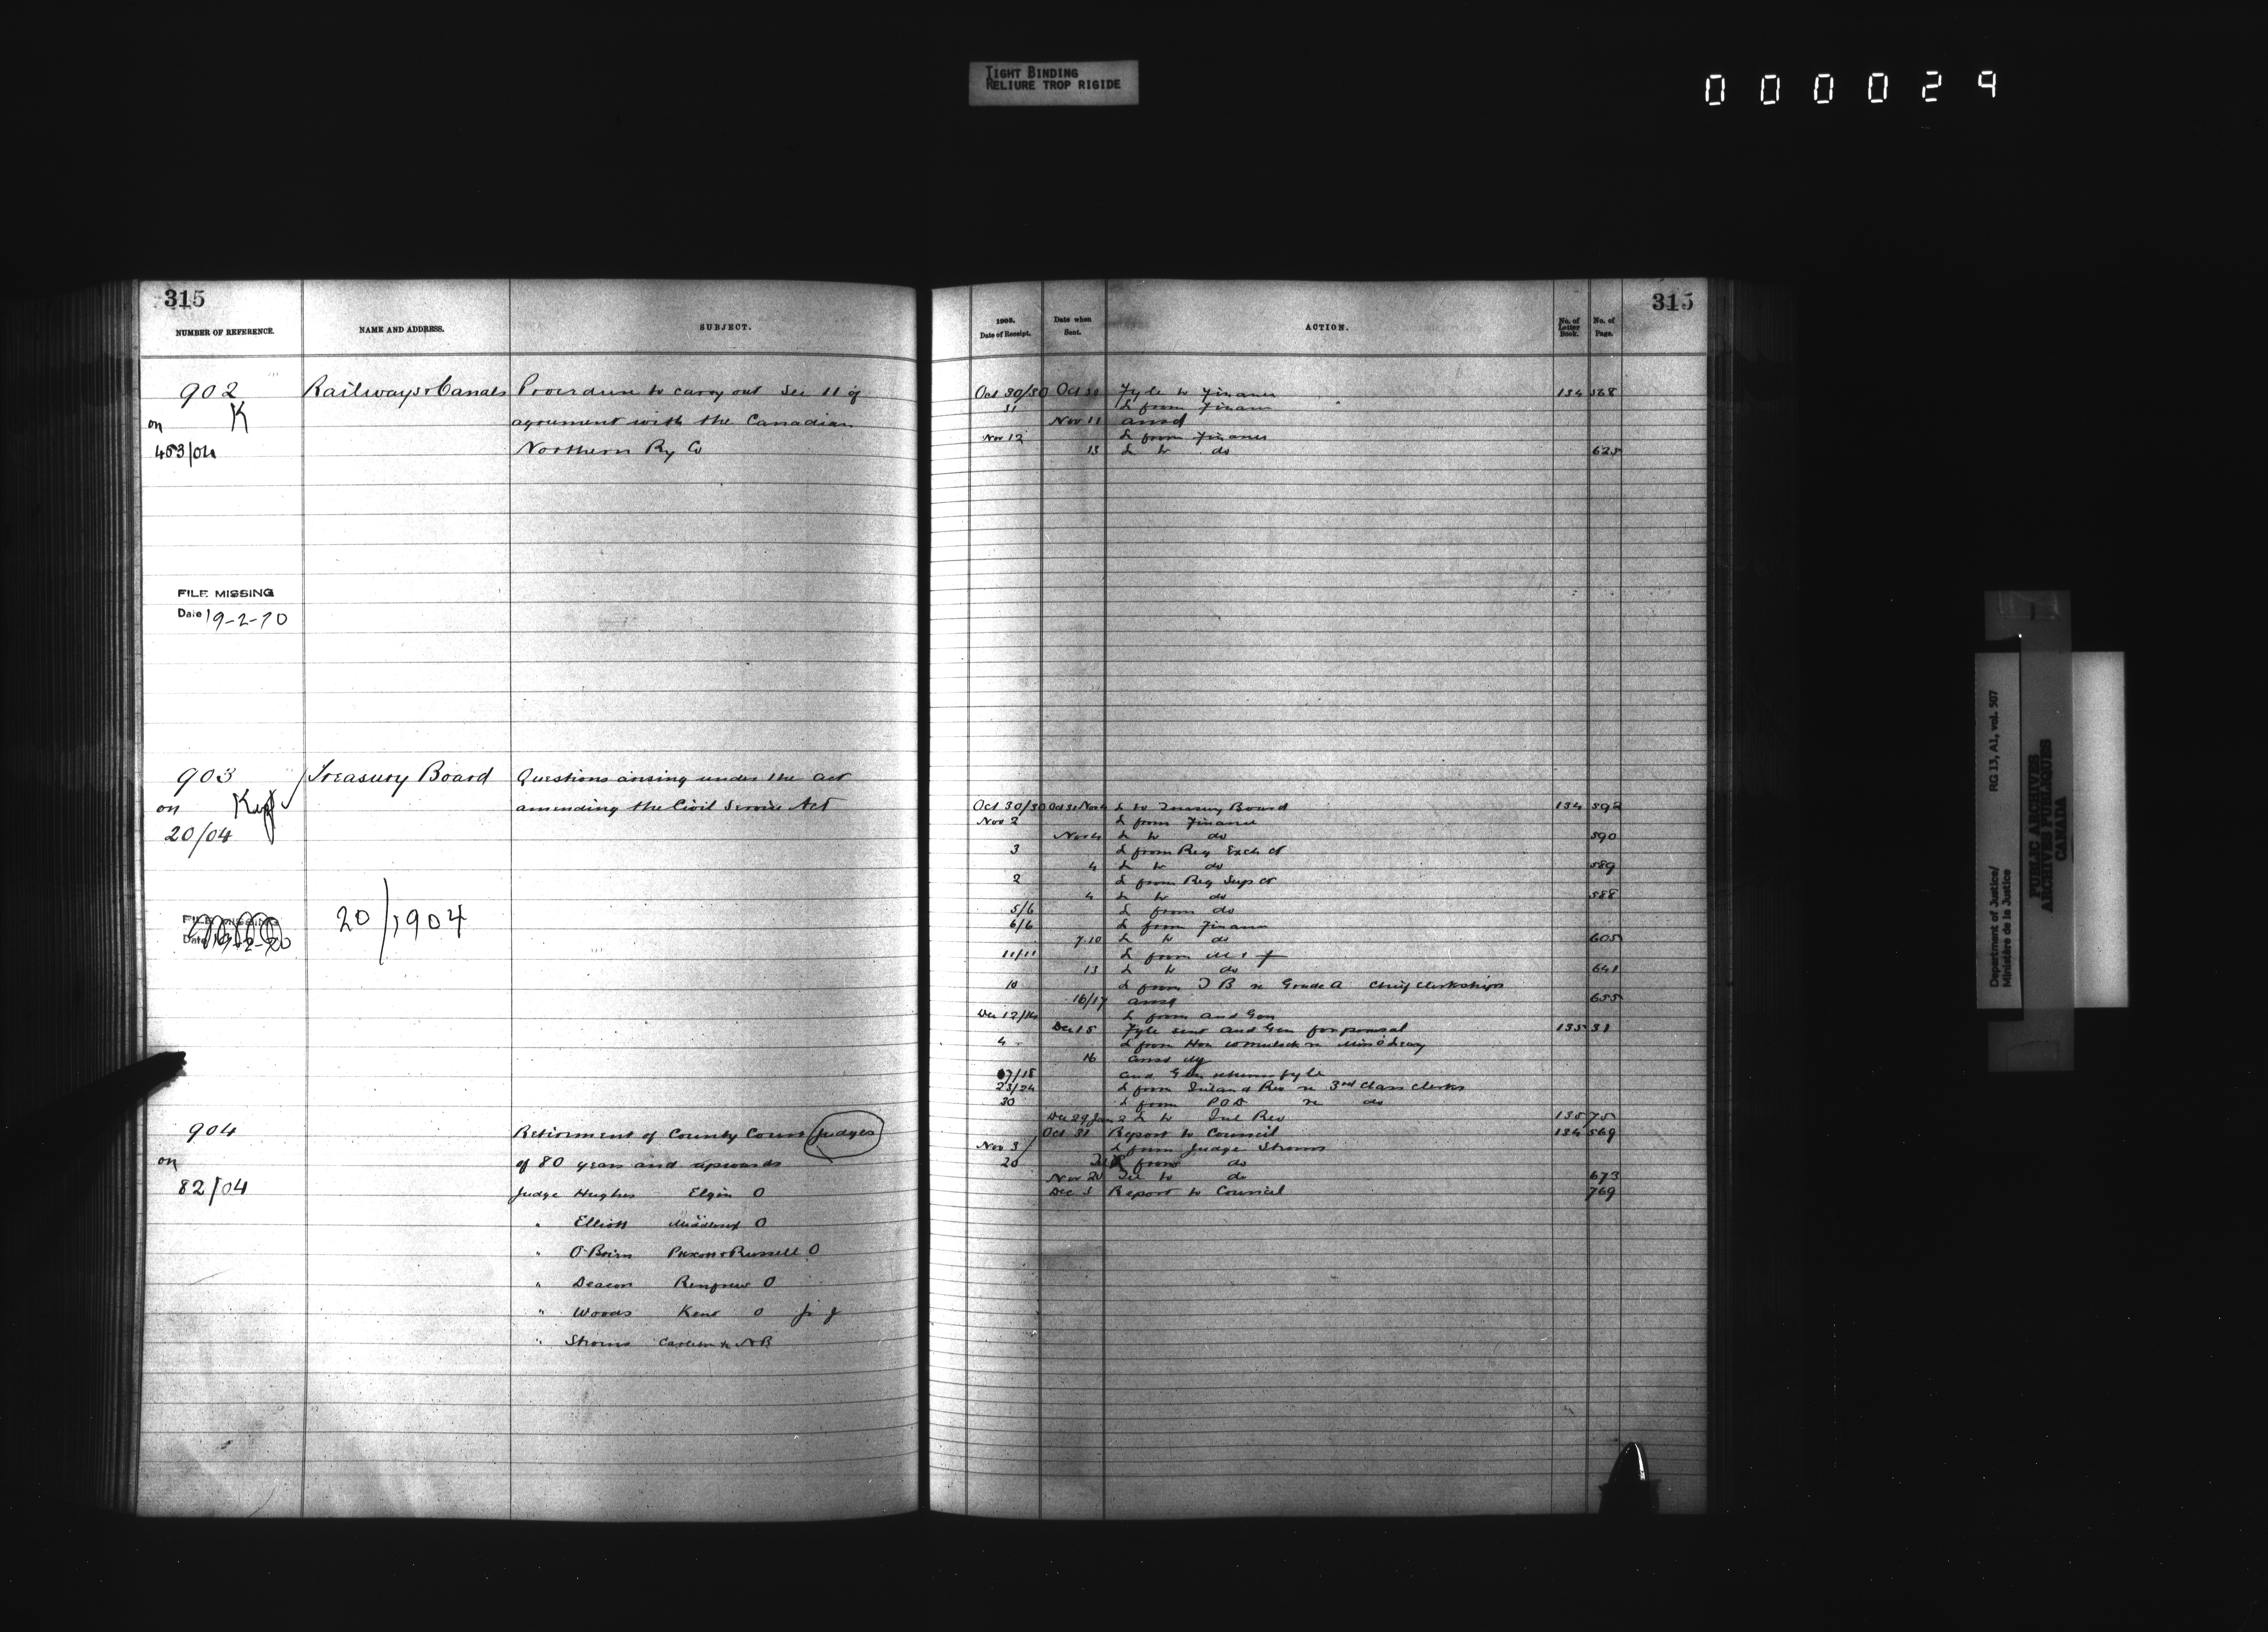 TIGHT BINDING
RELIURE TROP RIGIDE
000029
315
NUMBER OF REFERENCE.
NAME AND ADDRESS.
SUBJECT.
902
Railways & Canals
Procedure to carry out Sec 11 of
K
on
agreement with the Canadian
453/04
Northern Ry Co
FILE MISSING
Date 19-2-70
903
Treasury Board
Questions arising under the act
on
amending the Civil Service Act
20/04
FILE MISSING
20/1904
904
Retirement of County Court Judges
on
of 80 years and upwards
82/04
Judge Hughes Elgin O
" Elliott Middlesex O
" O'Brien Prescott & Russell O
" Deacon Renfrew O
" Woods Kent O
" Carleton &c NB
315
1903.
Date of Receipt.
Date when
Sent.
ACTION.
No. of
Letter
Book.
No. of
Page.
Oct 30/30 Oct 30 Fyle to Finance 134 568
31 L from Finance
Nov 11 ansd
Nov 12 L from Finance
13 L to do 625
Oct 30/30 Oct 31 Nov 4 L to Treasury Board 134 592
Nov 2 L from Finance
Nov 4 L to do 590
3 L from Reg Exch Ct
4 L to do 589
2 L from Reg Sup Ct
4 L to do 588
5/6 L from do
6/6 L from Finance
7.10 L to do 605
11/11 L from M & F
13 L to do 641
10 L from T B re Grade A Chief Clerkships
16/17 ansd 655
Dec 12/14 L from Aud Gen
Dec 15 Fyle sent Aud Gen for perusal 135 31
4 L from Hon W Mulock re Miss O'Leary
16 ansd
17/18 Aud Gen returns fyle
23/24 L from Inland Rev re 3rd Class Clerks
30 L from P.O.D re do
Dec 29 Jan 2 L to Inl Rev 135 75
Oct 31 Report to Council 134 569
Nov 3/ L from Judge
20 from do
Nov 20 Tel to do 673
Dec 3 Report to Council 769
Department of Justice/
Ministère de la Justice
RG 13, A1, vol. 507
PUBLIC ARCHIVES
ARCHIVES PUBLIQUES
CANADA